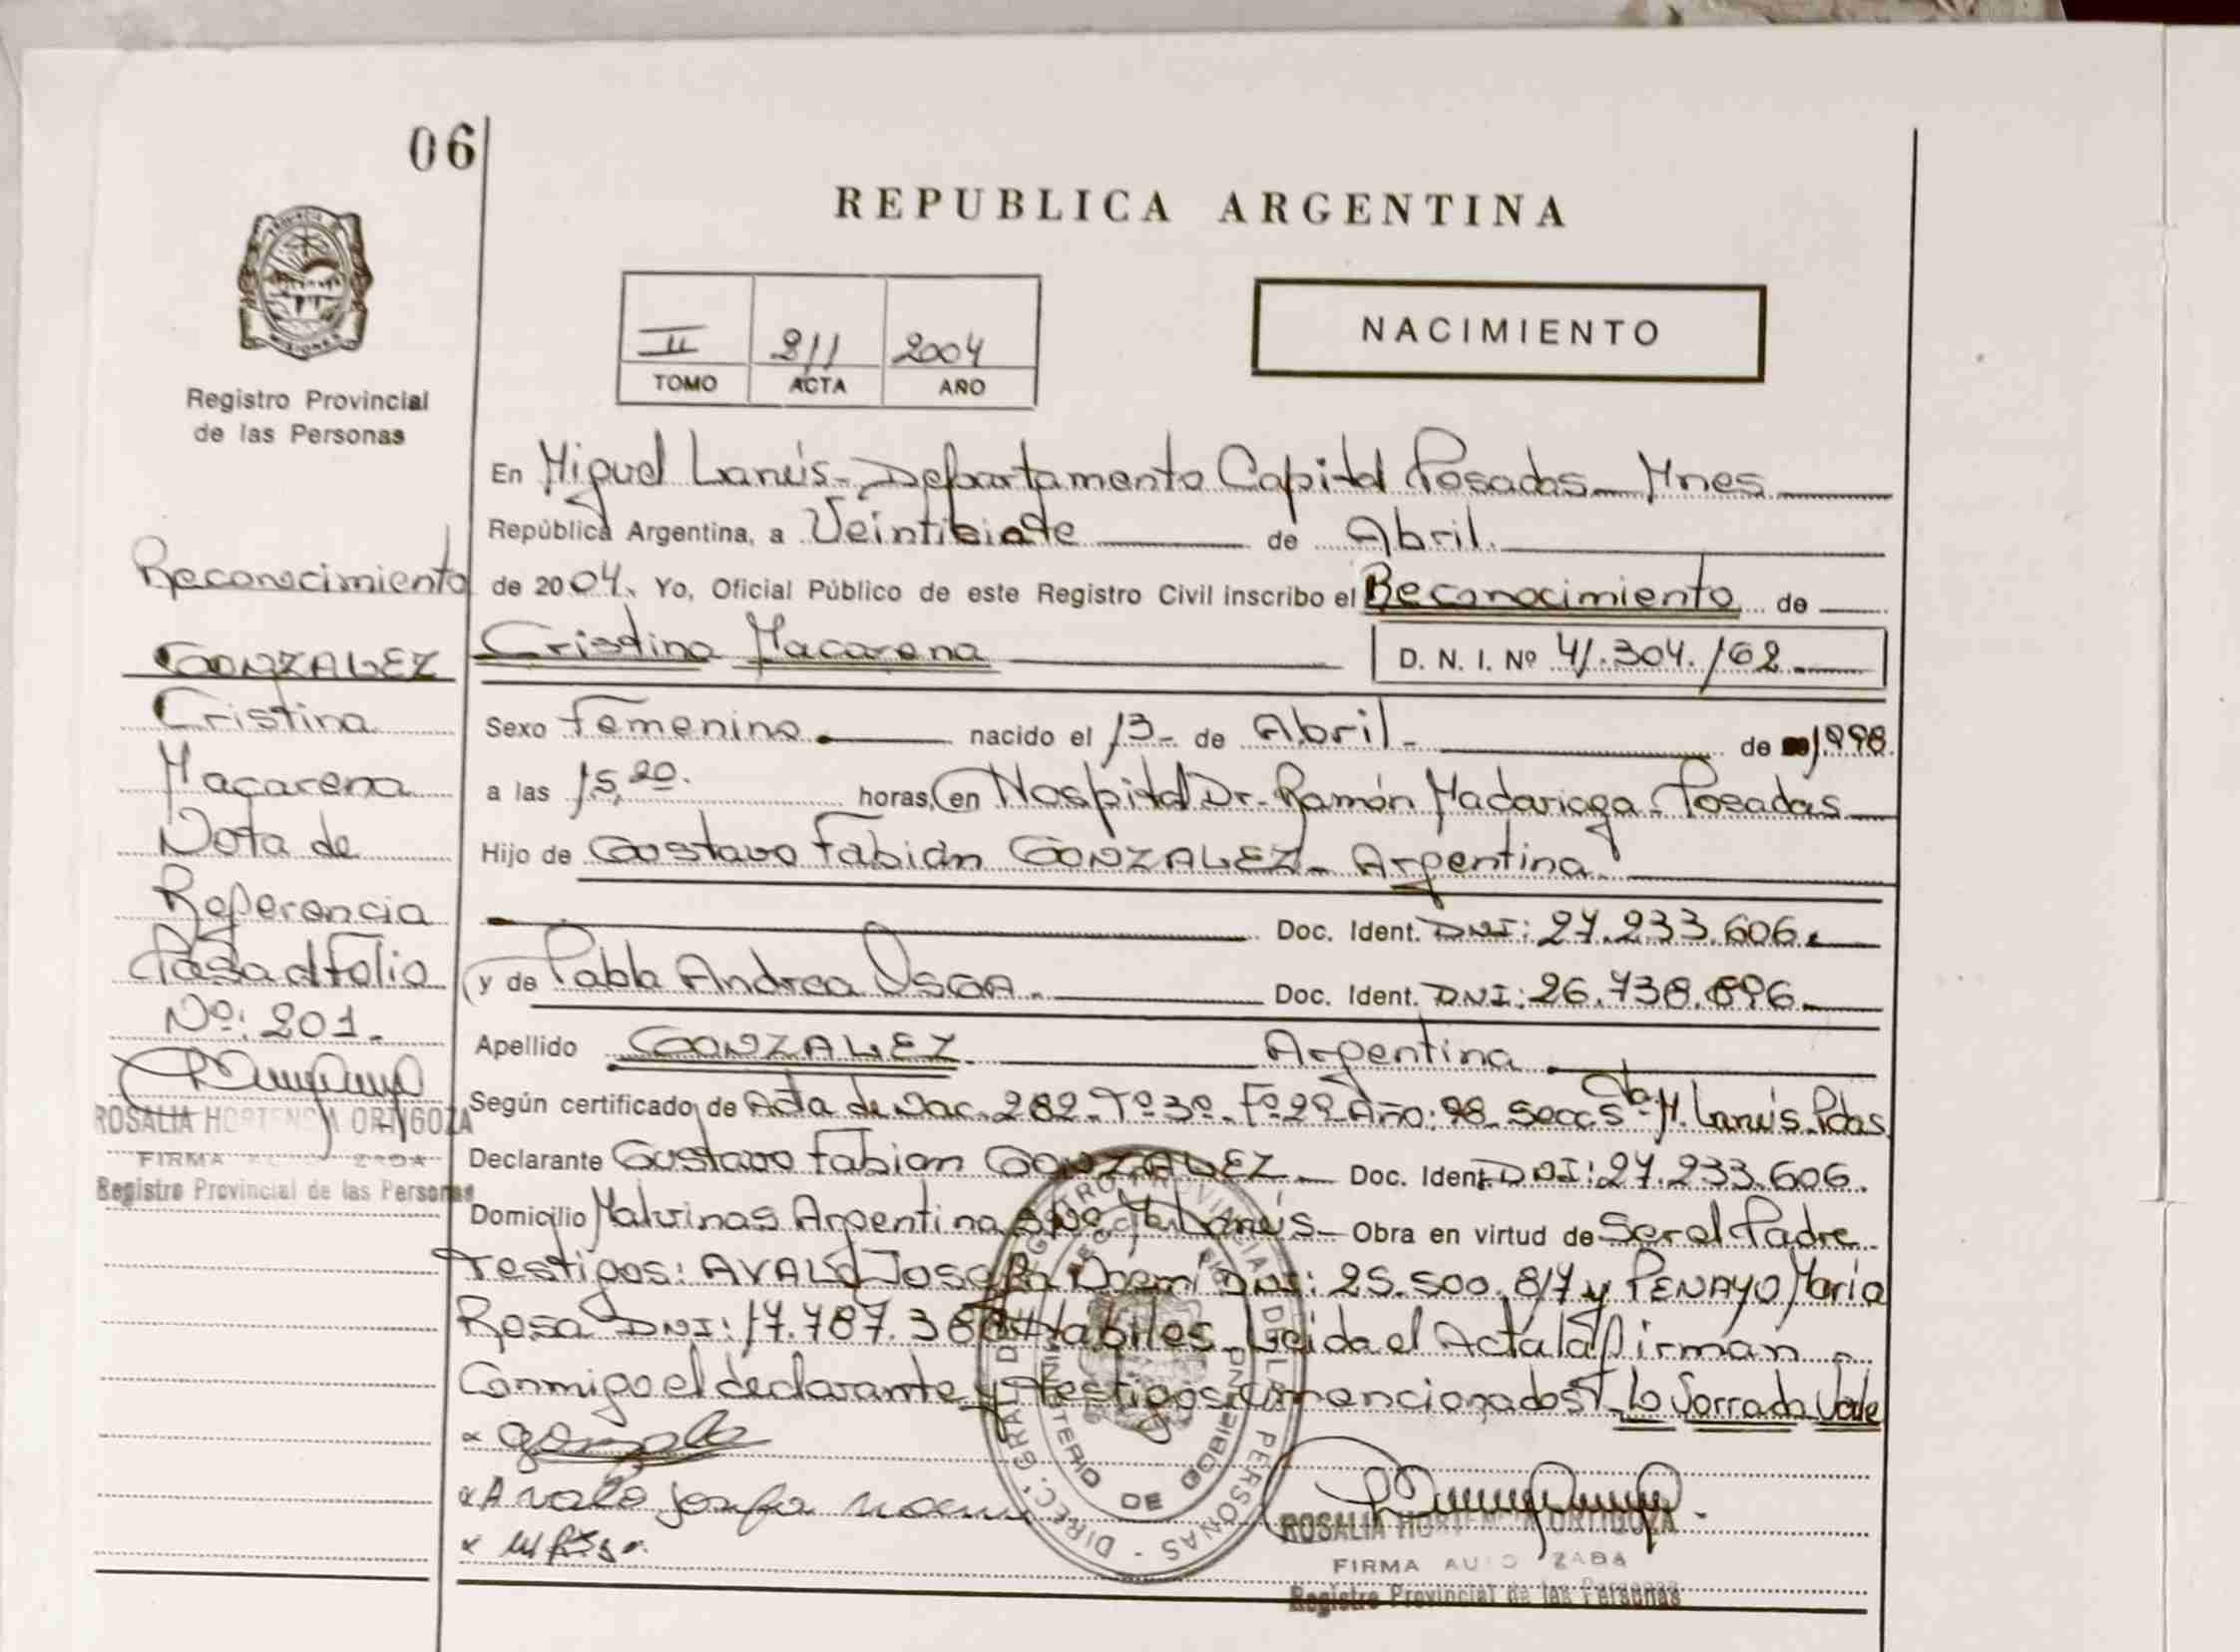 06
REPUBLICA ARGENTINA
II 211 2004
TOMO ACTA AÑO
NACIMIENTO
MISIONES
Registro Provincial
de las Personas
Reconocimiento
GONZALEZ
Cristina
Macarena
Nota de
Referencia
Pasa al Folio
Nº: 201.
ROSALIA HORTENCIA ORTIGOZA
FIRMA AUTORIZADA
Registro Provincial de las Personas
En Miguel Lanús - Departamento Capital Posadas - Mnes
República Argentina, a Veintisiete de Abril.
de 2004. Yo, Oficial Público de este Registro Civil inscribo el Reconocimiento de
Cristina Macarena D. N. I. Nº 41.304.162
Sexo Femenino nacido el 13 - de Abril - de 1998
a las 15,20. horas, en Hospital Dr. Ramón Madariaga - Posadas
Hijo de Gustavo Fabián GONZALEZ - Argentina.
Doc. Ident. DNI: 27.233.606.
y de Pabla Andrea Doc. Ident. DNI: 26.738.896.
Apellido GONZALEZ Argentina
Según certificado de Acta de Nac. 282 - Tº 3º - Fº 29 Año: 98 - Secc 5ta - M. Lanús - Pdas.
Declarante Gustavo Fabian GONZALEZ - Doc. Ident. DNI: 27.233.606.
Domicilio Malvinas Argentina S/Nº M. Lanús - Obra en virtud de Ser el Padre
Testigos: AVALO Josefa Noemí DNI: 25.500.817 y PENAYO María
Rosa DNI: 17.787.388 Habiles - Leida el Acta la firman
Conmigo el declarante y testigos mencionados - Lo Borrado Vale
Avalo Josefa Noemi
DIREC. GRAL. DEL REGISTRO PROVINCIAL DE LAS PERSONAS
MINISTERIO DE GOBIERNO
ROSALIA HORTENCIA ORTIGOZA
FIRMA AUTORIZADA
Registro Provincial de las Personas